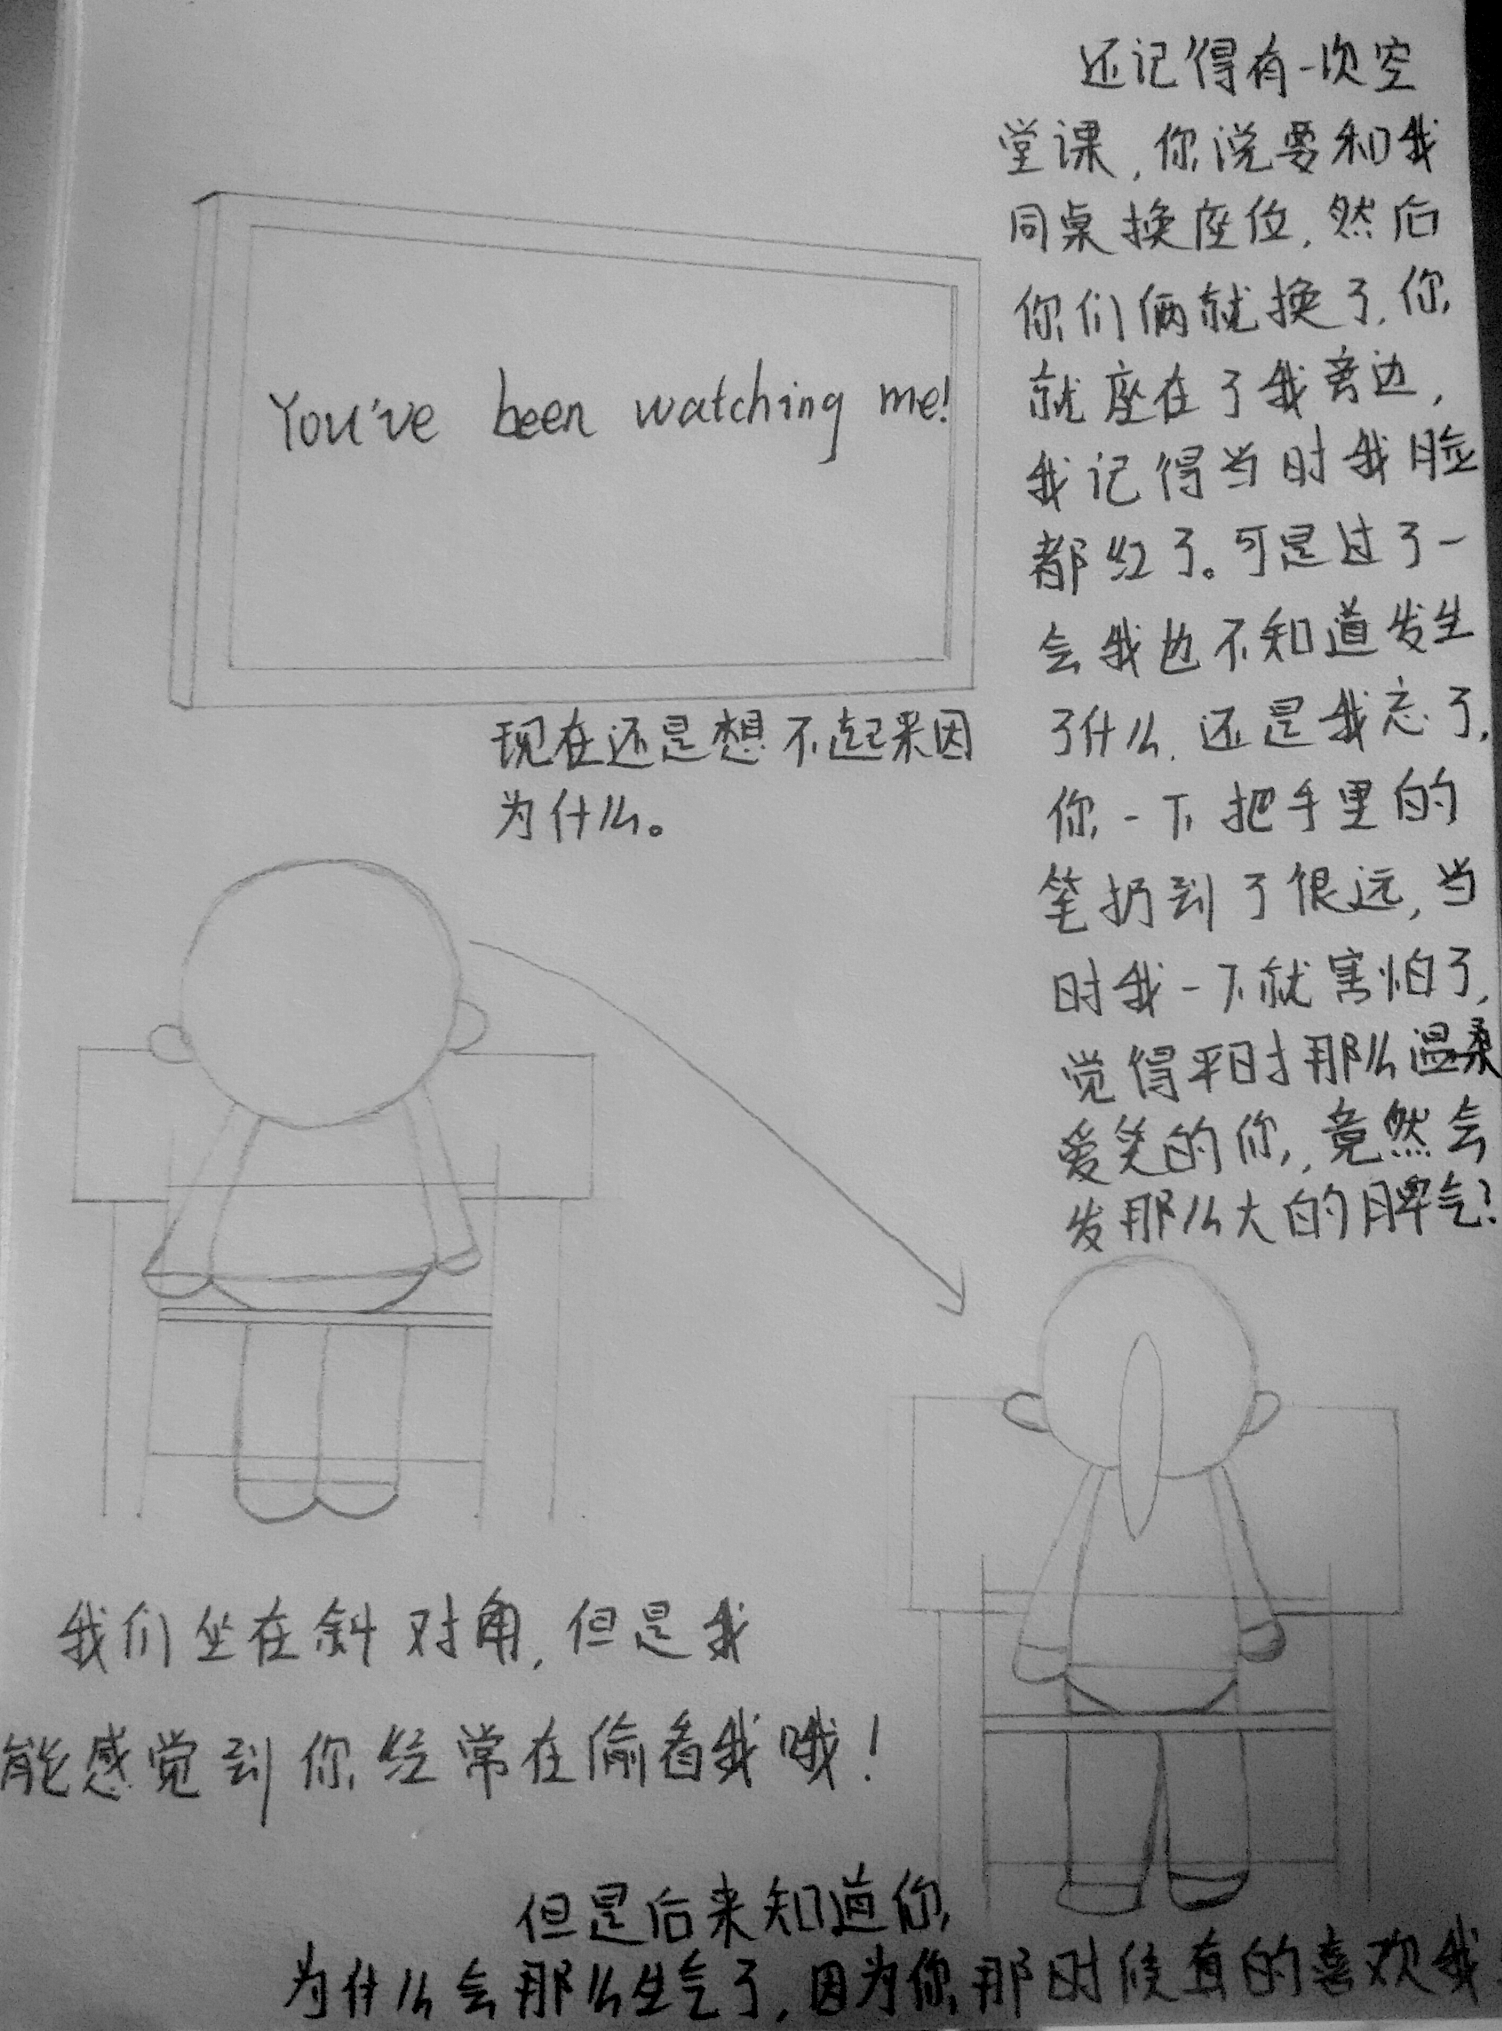 还记得有一次空
堂课,你说要和我
同桌换座位,然后
你们俩就换了,你
就座在了我旁边,
我记得当时我脸
都红了。可是过了一
会我也不知道发生
了什么,还是我忘了,
你一下把手里的
笔扔到了很远,当
时我一下就害怕了,
觉得平时那么温柔
爱笑的你,竟然会
发那么大的脾气?
You've been watching me!
现在还是想不起来因
为什么。
我们坐在斜对角,但是我
能感觉到你经常在偷看我哦!
但是后来知道你
为什么会那么生气了,因为你那时候真的喜欢我